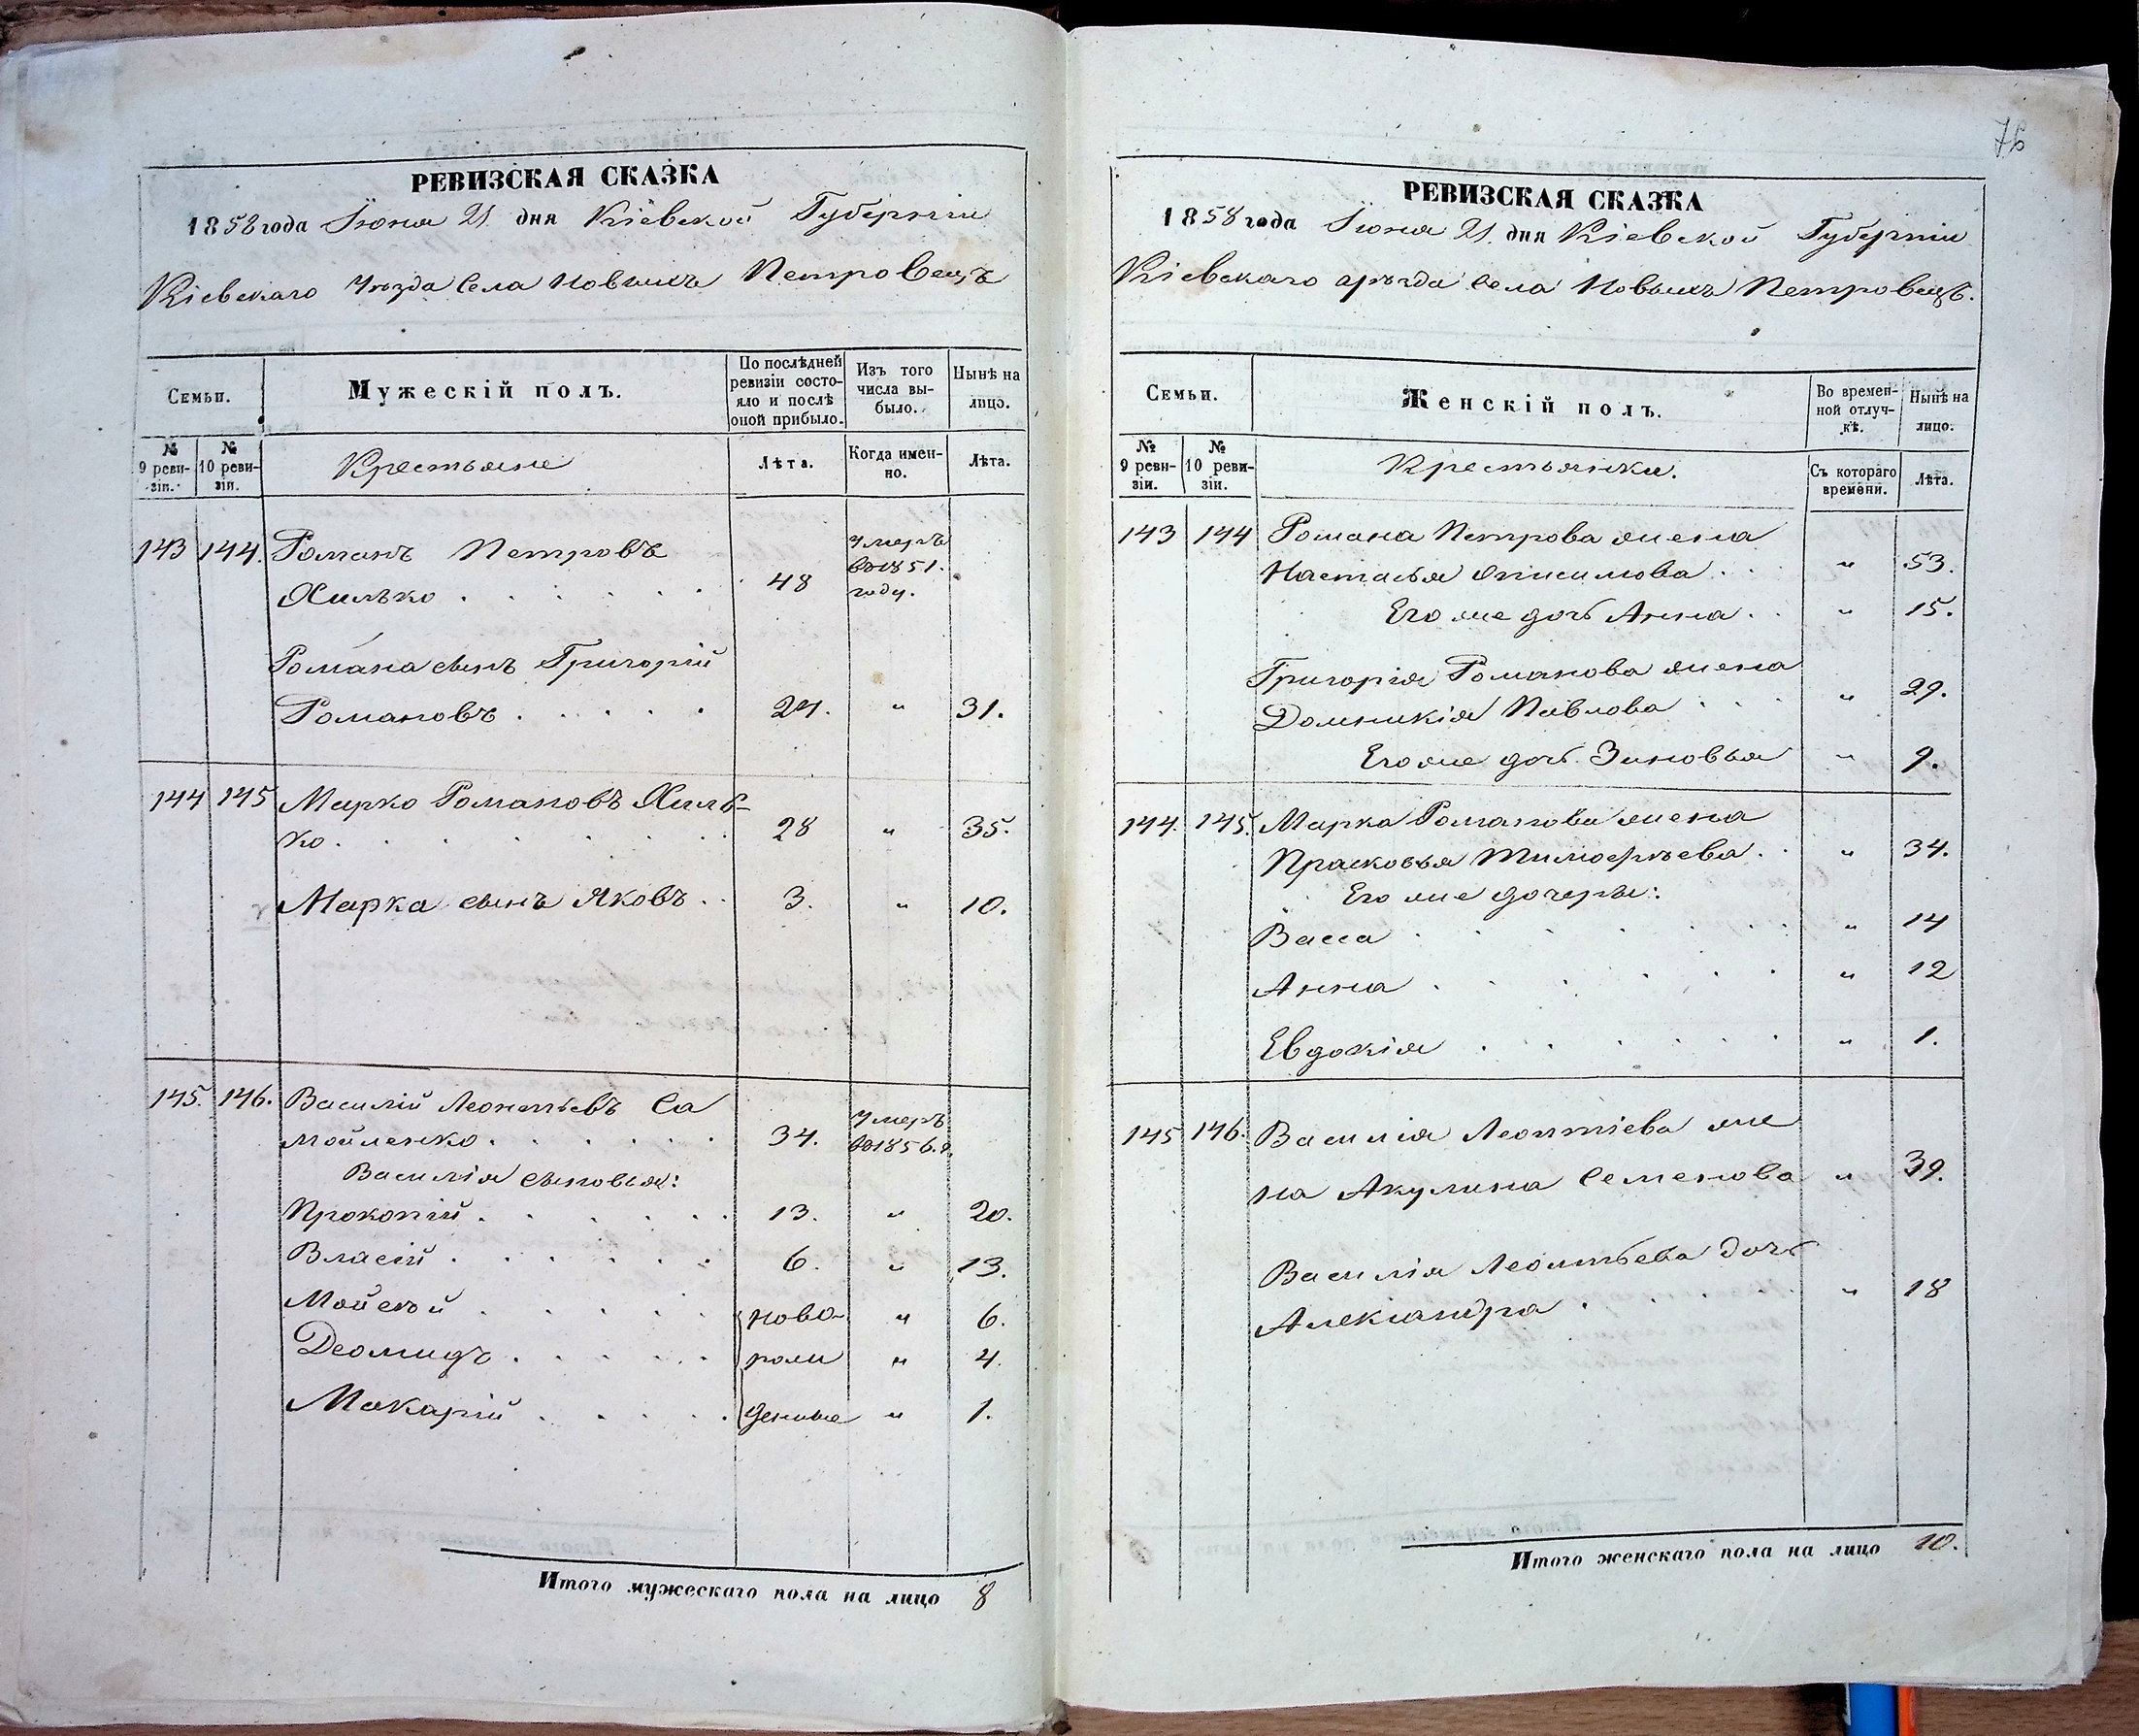 РЕВИЗСКАЯ СКАЗКА
1858 года Іюня 21 дня Кіевской Губерніи
Кіевскаго Уѣзда Села Новыхъ Петровецъ
Семьи.
Мужескій полъ.
По послѣдней ревизіи состояло и послѣ оной прибыло.
Изъ того числа выбыло.
Нынѣ на лицо.
№ 9 ревизіи.
№ 10 ревизіи.
Крестьяне
Лѣта.
Когда именно.
Лѣта.
143 144. Романъ Петровъ умеръ
Хилько . . . . . . 48 въ 1851. году.
Романа сынъ Григорій
Романовъ . . . . . 24. " 31.
144 145 Марко Романовъ Хиль-
ко . . . . . . 28 " 35.
Марка сынъ Яковъ . . 3. " 10.
145. 146. Василій Леонтьевъ Са умеръ
мойленко . . . . . . 34. въ 1856. г.
Василія сыновья:
Прокопій . . . . . . 13. " 20.
Власій . . . . . . 6. " 13.
Мойсей . . . . . ново- " 6.
Деомидъ . . . . . рожи " 4.
Макарій . . . . . денные " 1.
Итого мужескаго пола на лицо 8
76
РЕВИЗСКАЯ СКАЗКА
1858 года Іюня 21. дня Кіевской Губерніи
Кіевскаго уѣзда села Новыхъ Петровецъ.
Семьи.
Женскій полъ.
Во временной отлучкѣ.
Нынѣ на лицо.
№ 9 ревизіи.
№ 10 ревизіи.
Крестьянки.
Съ котораго времени.
Лѣта.
143 144 Романа Петрова жена
Настасья Онисимова . . " 53.
Его же дочь Анна . . " 15.
Григорія Романова жена
Домникія Павлова . . . " 29.
Его же дочь Зиновья " 9.
144. 145. Марка Романова жена
Прасковья Тимофѣева . . " 34.
Его же дочеры:
Васса . . . . . . " 14
Анна . . . . . " 12
Евдокія . . . . . . " 1.
145 146. Василія Леонтіева же
на Акулина Семенова " 39.
Василія Леонтьева дочь
Александра . . . . " 18
Итого женскаго пола на лицо 10.